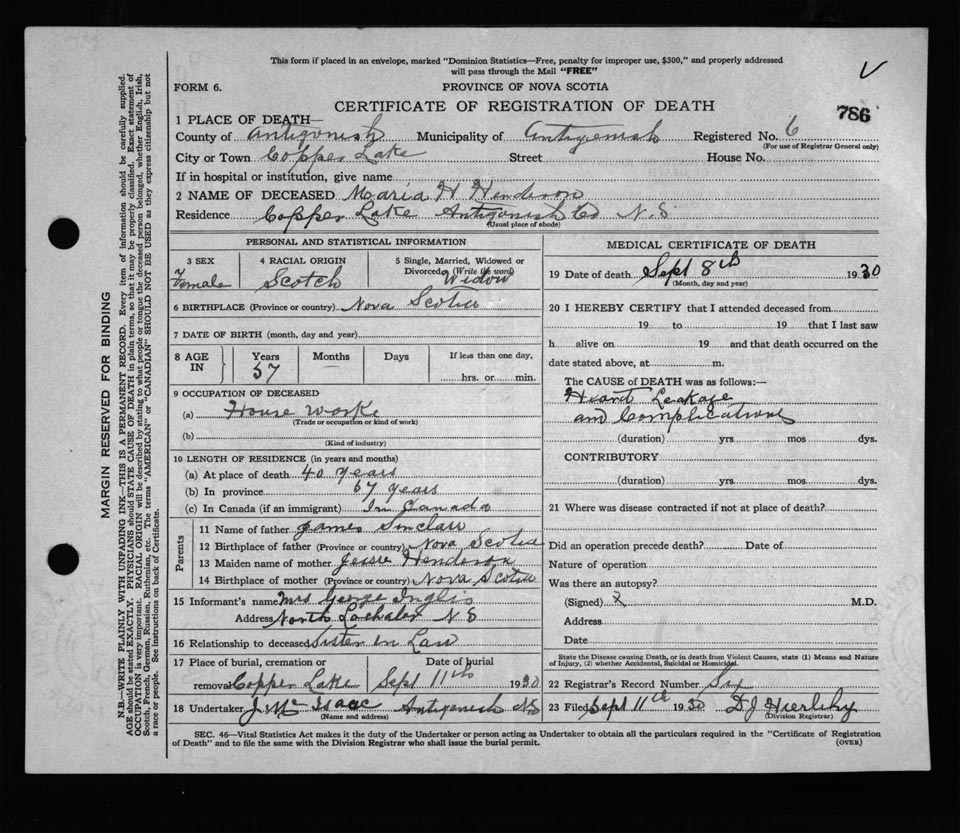 This form if placed in an envelope, marked "Dominion Statistics—Free, penalty for improper use, $300," and properly addressed
will pass through the Mail "FREE"
FORM 6.
PROVINCE OF NOVA SCOTIA
CERTIFICATE OF REGISTRATION OF DEATH
786
1 PLACE OF DEATH—
County of Antigonish Municipality of Antigonish Registered No. 6
(For use of Registrar General only)
City or Town Copper Lake Street House No.
If in hospital or institution, give name
2 NAME OF DECEASED Maria H Henderson
Residence Copper Lake Antigonish Co N.S
(Usual place of abode)
PERSONAL AND STATISTICAL INFORMATION
3 SEX
Female
4 RACIAL ORIGIN
Scotch
5 Single, Married, Widowed or
Divorced (Write the word)
Widow
6 BIRTHPLACE (Province or country) Nova Scotia
7 DATE OF BIRTH (month, day and year)
8 AGE IN
Years Months Days If less than one day,
57 hrs. or min.
9 OCCUPATION OF DECEASED
(a) House Worke
(Trade or occupation or kind of work)
(b)
(Kind of industry)
10 LENGTH OF RESIDENCE (in years and months)
(a) At place of death 40 years
(b) In province 57 years
(c) In Canada (if an immigrant) In Canada
Parents
11 Name of father James Sinclair
12 Birthplace of father (Province or country) Nova Scotia
13 Maiden name of mother Jessie Henderson
14 Birthplace of mother (Province or country) Nova Scotia
15 Informant's name Mrs George Inglis
Address North Lochaber N S
16 Relationship to deceased Sister in Law
17 Place of burial, cremation or Date of burial
removal Copper Lake Sept 11th 1930
18 Undertaker J. Mc Isaac Antigonish NS
(Name and address)
MEDICAL CERTIFICATE OF DEATH
19 Date of death Sept 8th 1930
(Month, day and year)
20 I HEREBY CERTIFY that I attended deceased from
19 to 19 that I last saw
h alive on 19 and that death occurred on the
date stated above, at m.
The CAUSE OF DEATH was as follows:—
Heart Leakage
and Complications
(duration) yrs. mos. dys.
CONTRIBUTORY
(duration) yrs. mos. dys.
21 Where was disease contracted if not at place of death?
Did an operation precede death? Date of
Nature of operation
Was there an autopsy?
(Signed) X M.D.
Address
Date
State the Disease causing Death, or in death from Violent Causes, state (1) Means and Nature
of Injury, (2) whether Accidental, Suicidal or Homicidal.
22 Registrar's Record Number Six
23 Filed Sept 11th 1930 D J Hierlihy
(Division Registrar)
SEC. 46—Vital Statistics Act makes it the duty of the Undertaker or person acting as Undertaker to obtain all the particulars required in the "Certificate of Registration
of Death" and to file the same with the Division Registrar who shall issue the burial permit.
(OVER)
MARGIN RESERVED FOR BINDING
N.B.—WRITE PLAINLY WITH UNFADING INK—THIS IS A PERMANENT RECORD. Every item of information should be carefully supplied.
AGE should be stated EXACTLY. PHYSICIANS should STATE CAUSE OF DEATH in plain terms, so that it may be properly classified. Exact statement of
OCCUPATION is very important. RACIAL ORIGIN will be described by stating to what people or tongue the deceased person belonged, whether English, Irish,
Scotch, French, German, Russian, Ruthenian, etc. The terms "AMERICAN" or "CANADIAN" SHOULD NOT BE USED as they express citizenship but not
a race or people. See instructions on back of Certificate.